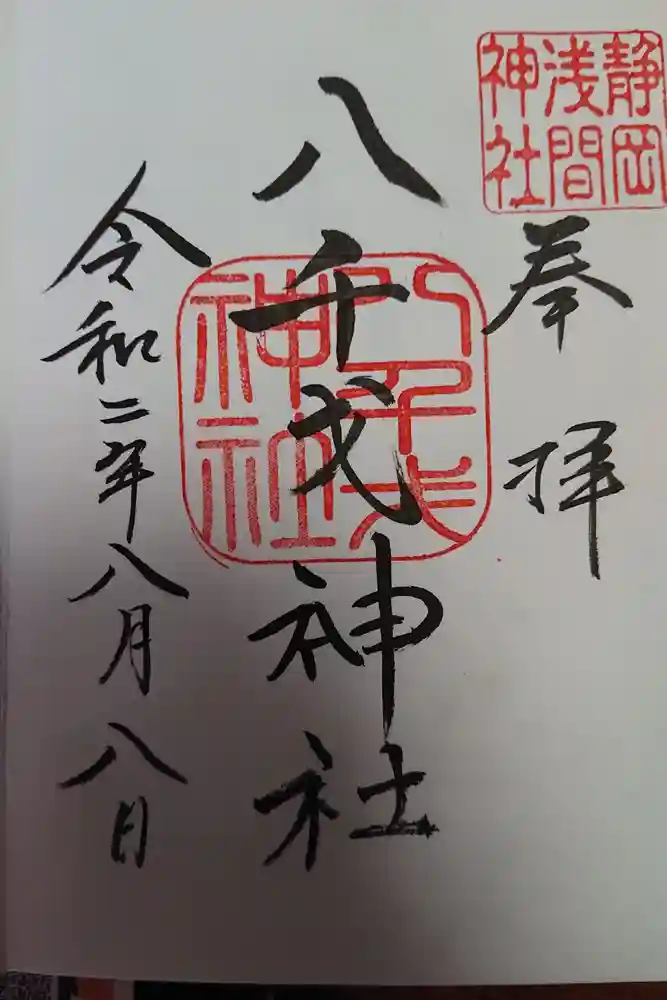 静岡
浅間
神社
奉拝
八千戈神社
八千戈
神社
令和二年八月八日